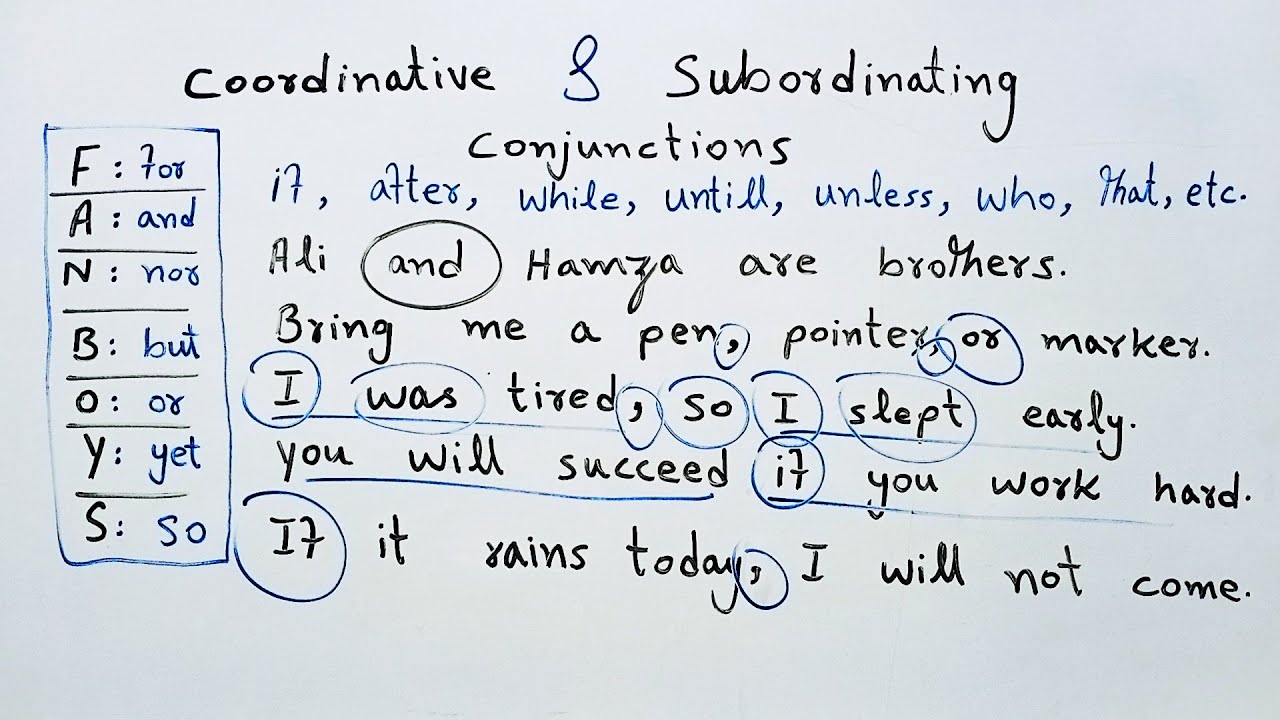 Coordinative & Subordinating
Conjunctions
F : for
A : and
N : nor
B : but
O : or
Y : yet
S : so
if, after, while, untill, unless, who, that, etc.
Ali and Hamza are brothers.
Bring me a pen, pointer, or marker.
I was tired, so I slept early.
you will succeed if you work hard.
If it rains today, I will not come.